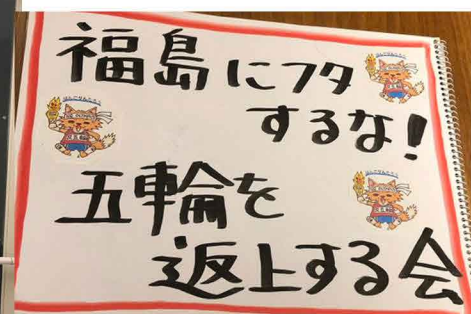 福島にフタ
するな!
五輪を
返上する会